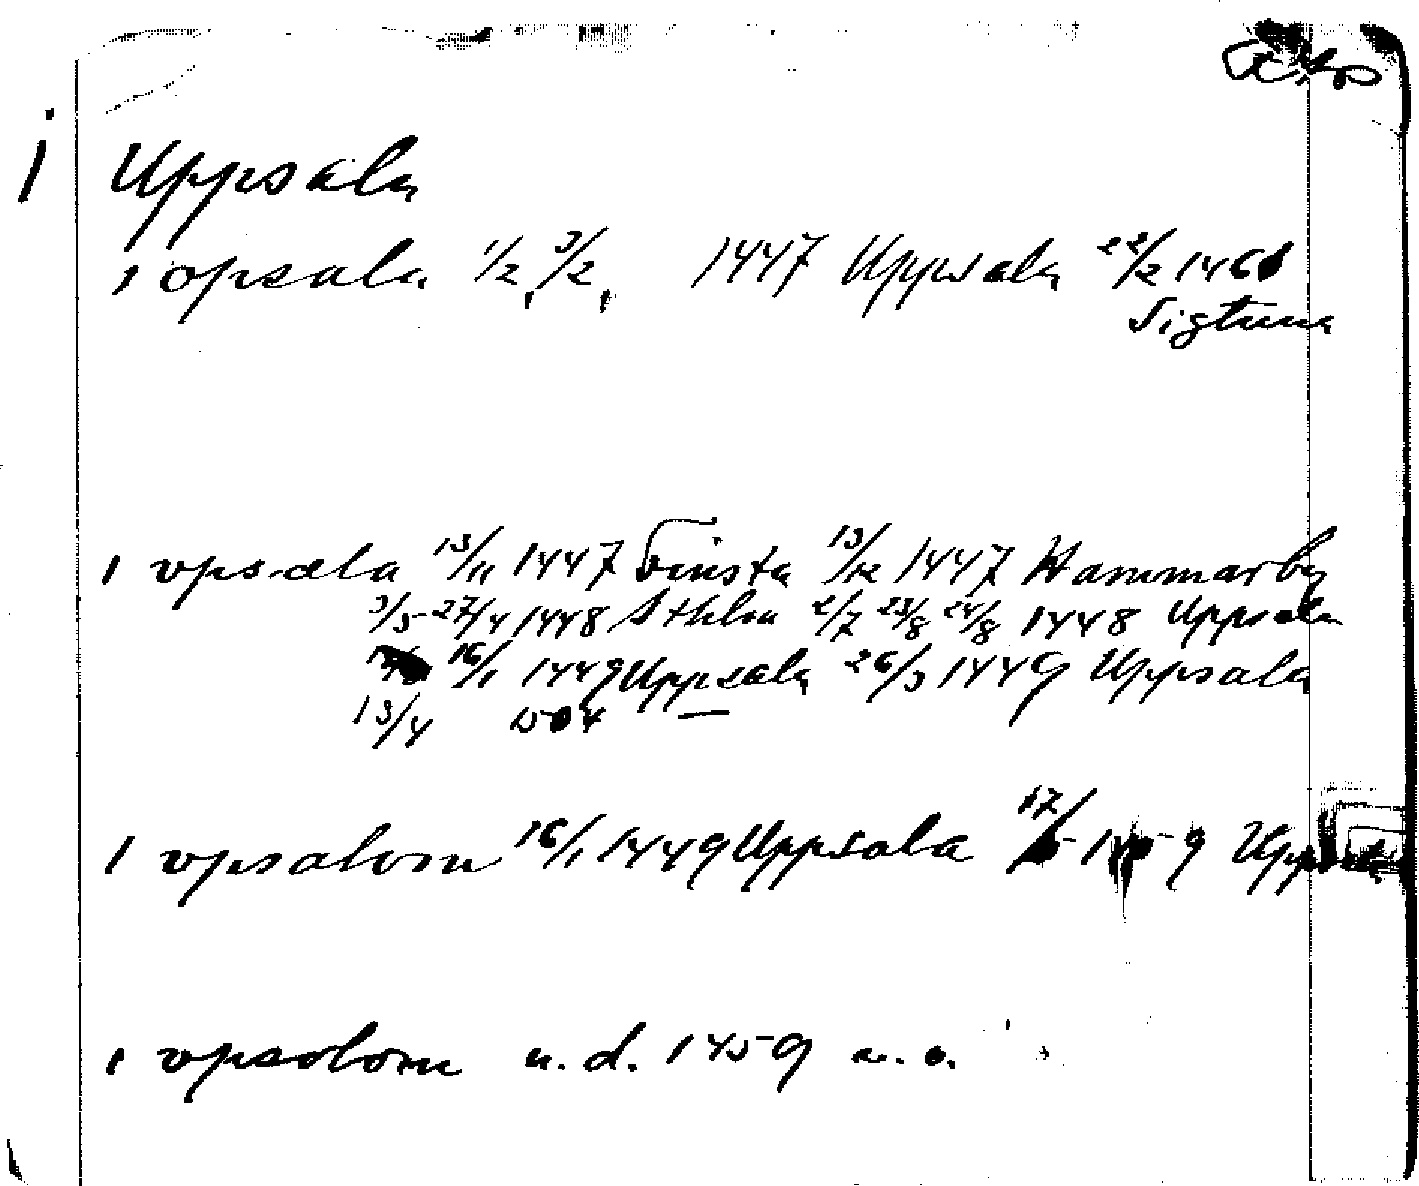 i Uppsala
i opsala 1/2, 3/2, 1447 Uppsala 22/2 1461
Sigtuna
i vpsala 13/11 1447 Finsta 13/12 1447 Hammarby
3/5 27/4 1448 Sthlm 2/7 23/8 24/8 1448 Uppsala
16/1 1449 Uppsala 26/3 1449 Uppsala
13/4 1504 —
i vpsalom 16/1 1449 Uppsala 17/5 1459 Uppsala
i vpsolom u.d. 1459 u.o.